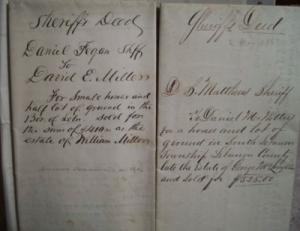 Sheriff's Deed
Daniel Fegan Shff
To
David E. Miller
For Small house and
half lot of ground in the
Bor. of Leb. sold for
the sum of $ as the
estate of William Miller
Sheriff's Deed
D. S. Matthews Sheriff
To Daniel W. Miller
for a house and lot of
ground in South Lebanon
Township Lebanon County
late the estate of George
and sold for $525.00